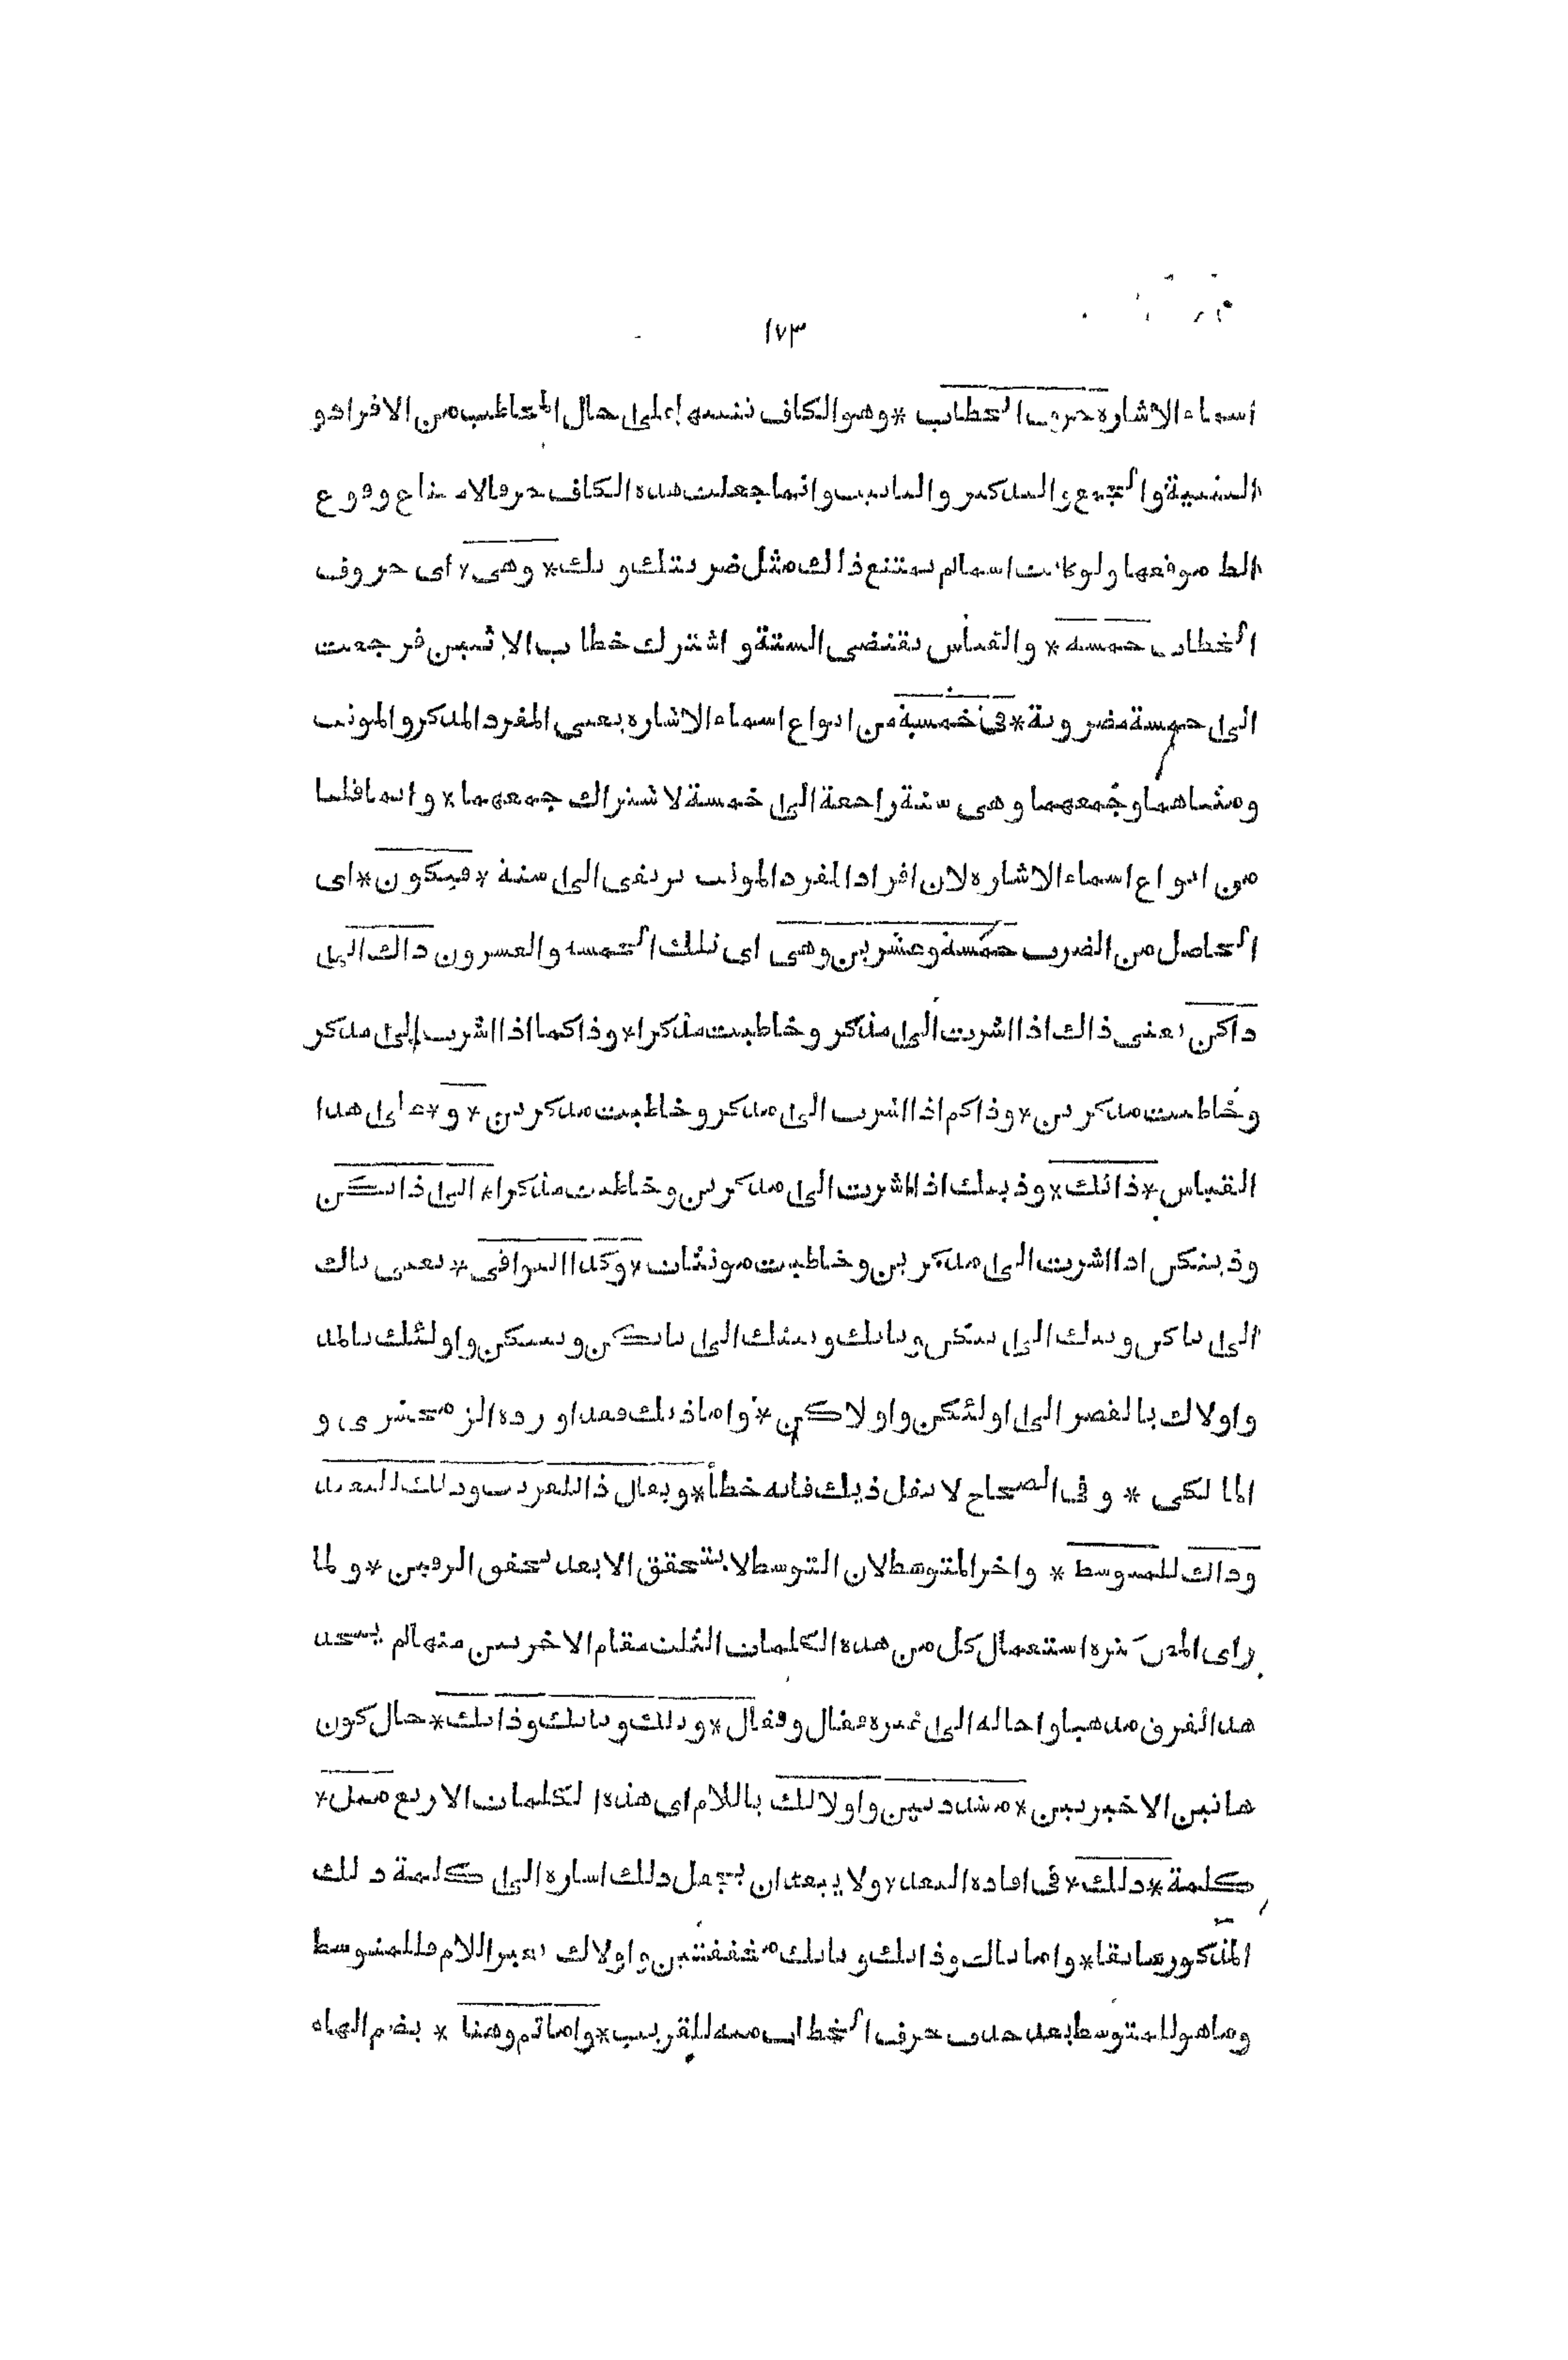 ١٧٣
اسماء الاشارة حرف الخطاب * وهو الكاف تنبيها على حال المخاطب من الافراد و
التثنية والجمع والتذكير والتانيث وانما جعلت هذه الكاف حرفا لامتناع وقوع
الظ موقعها ولو كانت اسما لم يمتنع ذالك مثل ضربتك وبك * وهى * اى حروف
الخطاب خمسة * والقياس يقتضى الستة واشترك خطاب الاثنين فرجعت
الى خمسة مضروبة * فى خمسة من انواع اسماء الاشارة يعنى المفرد المذكر والمونث
ومثناهما وجمعهما وهى ستة راجعة الى خمسة لاشتراك جمعهما * وانما قلنا
من انواع اسماء الاشارة لان افراد المفرد المونث يرتقى الى ستة * فيكون * اى
الحاصل من الضرب خمسة وعشرين وهى اى تلك الخمسة والعشرون ذاك الى
ذاكن يعنى ذاك اذا اشرت الى مذكر وخاطبت مذكرا * وذاكما اذا اشرت الى مذكر
وخاطبت مذكرين * وذاكم اذا اشرت الى مذكر وخاطبت مذكرين * و * على هذا
القياس * ذانك * وذينك اذا اشرت الى مذكرين وخاطبت مذكرا * الى ذانكن
وذينكن اذا اشرت الى مذكرين وخاطبت مونثات * وكذا البواقى * يعنى تاك
الى تاكن وتيك الى تيكن وتانك وتينك الى تانكن وتينكن واولئك بالمد
واولاك بالقصر الى اولئكن واولاكن * واما ذيك فقد اورده الزمخشرى و
المالكى * وفى الصحاح لا تقل ذيك فانه خطأ * ويقال ذا للقريب وذلك للبعيد
وذاك للمتوسط * واخر المتوسط لان التوسط لا يتحقق الا بعد تحقق الطرفين * ولما
راى المص كثرة استعمال كل من هذه الكلمات الثلث مقام الاخريين منها لم يتخذ
هذا الفرق مذهبا واحاله الى غيره فقال ويقال * وتلك وتانك وذانك * حال كون
هاتين الاخيرتين * مشددتين واولالك باللام اى هذه الكلمات الاربع مثل *
كلمة * ذلك * فى افادة البعد * ولا يبعد ان يجعل ذلك اشارة الى كلمة ذلك
المذكور سابقا * واما تاك وذانك وتانك مخففتين واولاك بغير اللام فللمتوسط
وما هو للمتوسط بعد حذف حرف الخطاب منه للقريب * واما ثم وهنا * بضم الهاء